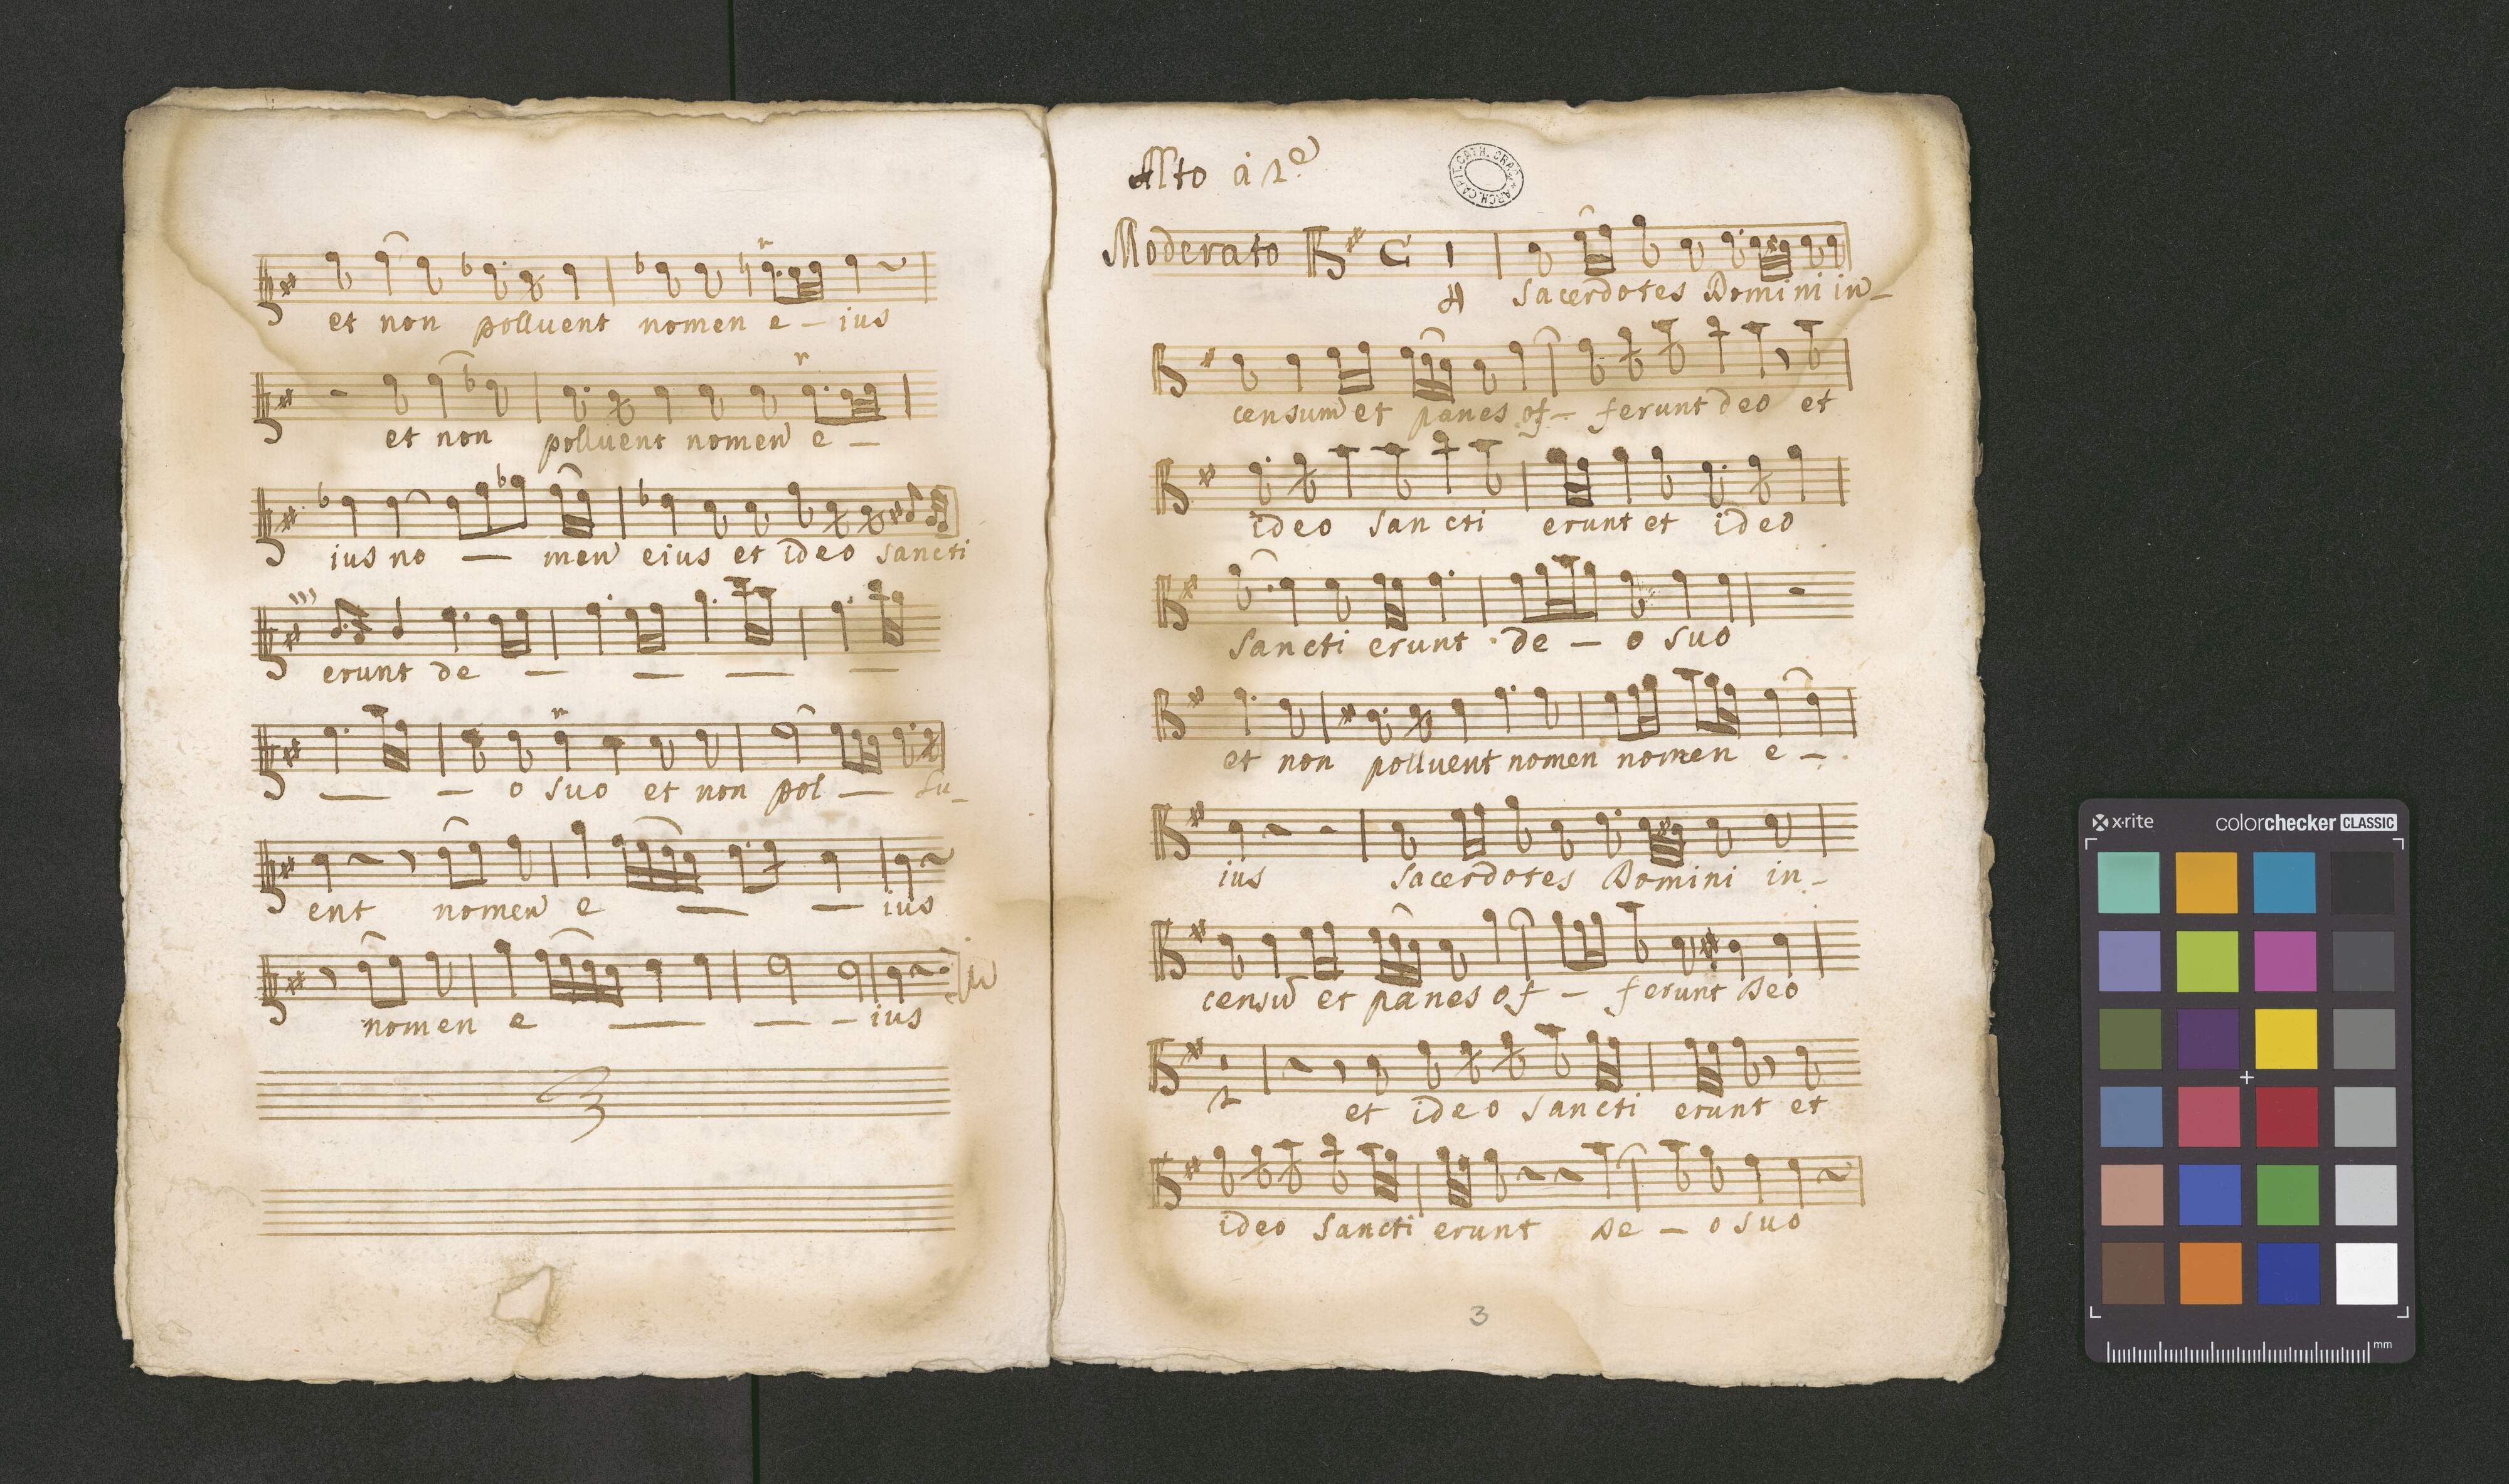 et non polluent nomen e - ius
et non polluent nomen e -
ius no - men eius et ideo sancti
erunt de - - - -
- - o suo et non pol - lu-
ent nomen e - - ius
nomen e - - - ius
Alto à 2e
ARCH. CAPIT. CATH. CRAC.
Moderato
4 Sacerdotes Domini in-
censum et panes of- ferunt deo et
ideo sancti erunt et ideo
Sancti erunt de - o suo
et non polluent nomen nomen e -
ius Sacerdotes Domini in-
censū et panes of - ferunt Deo
2 et ideo sancti erunt et
ideo Sancti erunt De - o suo
3
x-rite colorchecker CLASSIC
mm